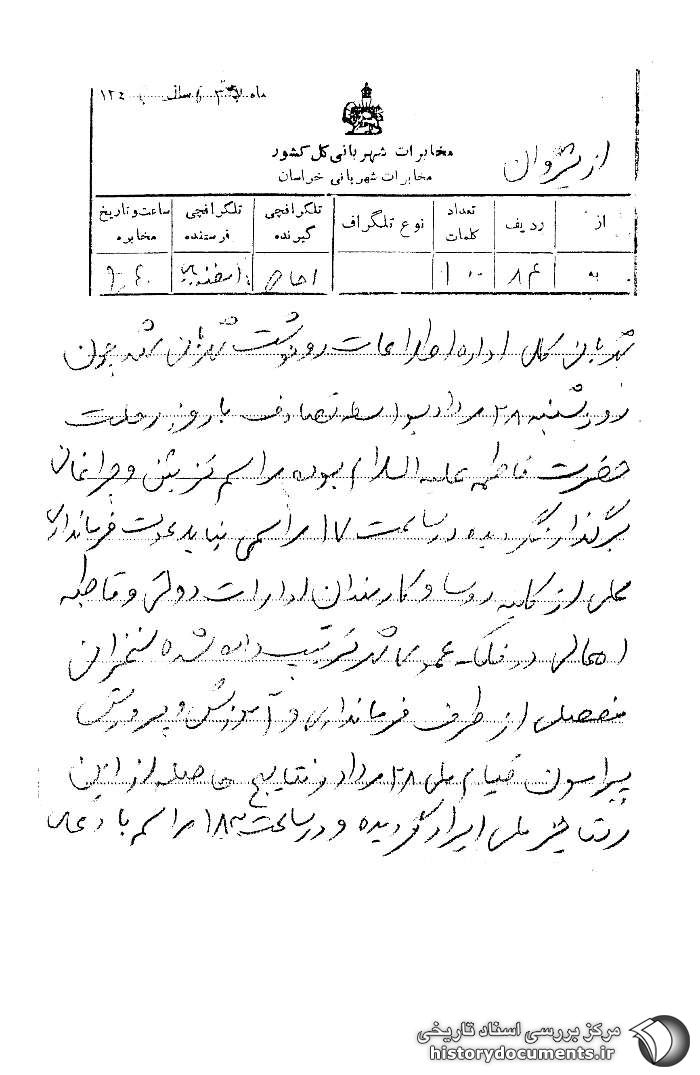 ماه سال ۱۳۴
مخابرات شهربانی کل کشور
مخابرات شهربانی خراسان
از شیروان
از ردیف تعداد کلمات نوع تلگراف تلگرافچی گیرنده تلگرافچی فرستنده ساعت و تاریخ مخابره
به ۸۴ ۱۰۰
شهربانی کل اداره اطلاعات رونوشت شهربانی مشهد چون
روز شنبه ۲۸ مرداد بواسطه تصادف با روز رحلت
حضرت فاطمه علیه السلام بوده مراسم تزیین و چراغانی
برگذار نگردیده در ساعت ۱۷ مراسمی بنا بدعوت فرمانداری
محلی از کلیه روسا و کارمندان ادارات دولتی و قاطبه
اهالی در فلکه عمومی شهر ترتیب داده شده سخنرانی
مفصلی از طرف فرمانداری و آموزش و پرورش
پیرامون قیام ملی ۲۸ مرداد و نتایج حاصله از این
رستاخیز ملی ایراد گردیده و در ساعت ۱۸ مراسم با دعای
مرکز بررسی اسناد تاریخی
historydocuments.ir